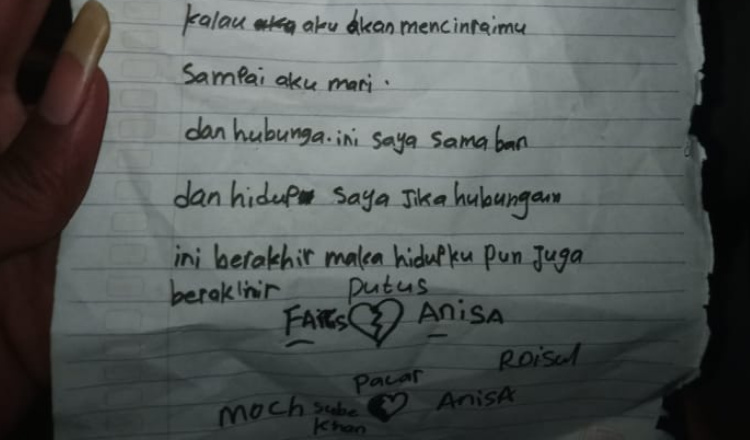 kalau aku akan mencinraimu
Sampai aku mari.
dan hubunga.ini saya sama ban
dan hidup saya Jika hubungan
ini berakhir maka hidupku pun Juga
berakhir putus
FARS ANISA
ROiSul
pacar
MOCH Sube ANISA
Khan